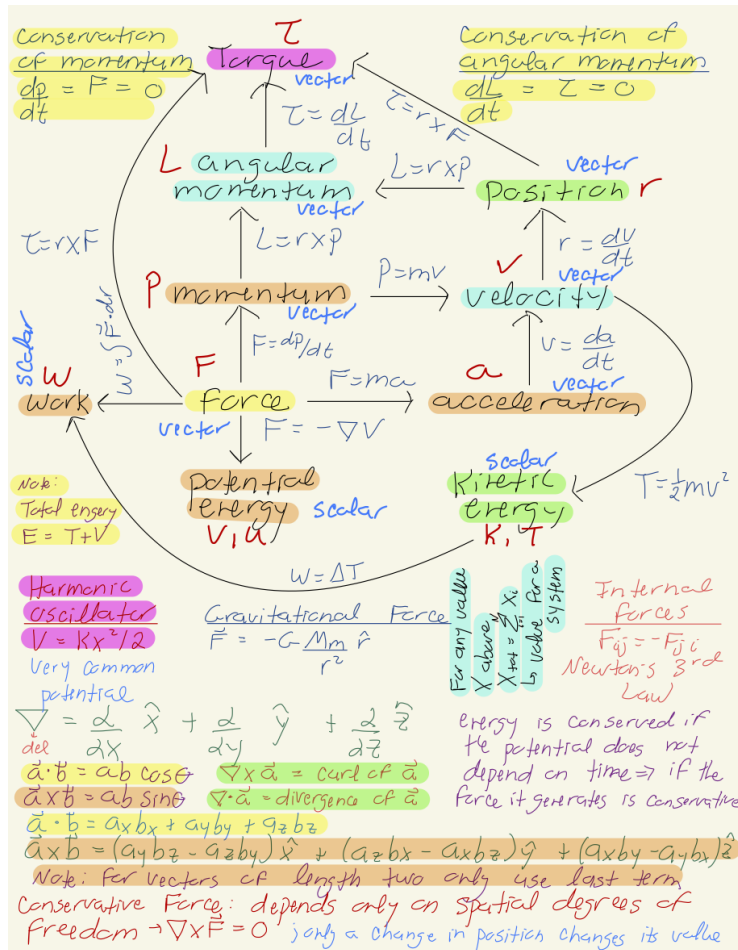 Conservation
of momentum
dp/dt = F = 0
τ
Torque
vector
Conservation of
angular momentum
dL/dt = τ = 0
τ = dL/dt
τ=r×F
L angular
momentum
vector
L=r×P
vector
position r
τ=r×F
L=r×P
r = dv/dt
P momentum
vector
P=mv
v
vector
velocity
W=∫F⃗·dr
F=dp/dt
v = da/dt
scalar
W
work
F
force
vector
F=ma
a
vector
acceleration
F = -∇V
potential
energy
V, u
scalar
scalar
Kinetic
energy
K, T
T=½mv²
Note:
Total engery
E = T+V
W=ΔT
Harmonic
oscillator
V = Kx²/2
very common
potential
Gravitational Force
F⃗ = -G Mm/r² r̂
For any value
X above
Xtot = Σ Xi
↳ value for a
system
N
i=1
Internal
forces
Fij = -Fji
Newton's 3rd
Law
∇ = ∂/∂x x̂ + ∂/∂y ŷ + ∂/∂z ẑ
del
a⃗·b⃗ = ab cosθ
∇×a⃗ = curl of a⃗
a⃗×b⃗ = ab sinθ
∇·a⃗ = divergence of a⃗
a⃗·b⃗ = axbx + ayby + azbz
energy is conserved if
the potential does not
depend on time ⇒ if the
force it generates is conservative
a⃗×b⃗ = (aybz - azby) x̂ + (azbx - axbz) ŷ + (axby - aybx) ẑ
Note: for vectors of length two only use last term
Conservative Force: depends only on spatial degrees of
freedom → ∇×F⃗ = 0 ; only a change in position changes its value